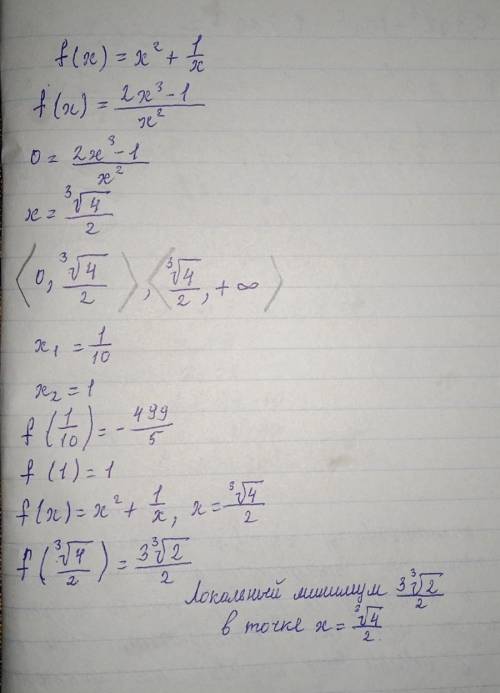 f(x) = x² + 1/x
f(x) = (2x³ - 1)/x²
0 = (2x³ - 1)/x²
x = ∛4/2
⟨0, ∛4/2⟩, ⟨∛4/2, +∞⟩
x₁ = 1/10
x₂ = 1
f(1/10) = - 499/5
f(1) = 1
f(x) = x² + 1/x, x = ∛4/2
f(∛4/2) = 3∛2/2
Локальный минимум 3∛2/2
в точке x = ∛4/2